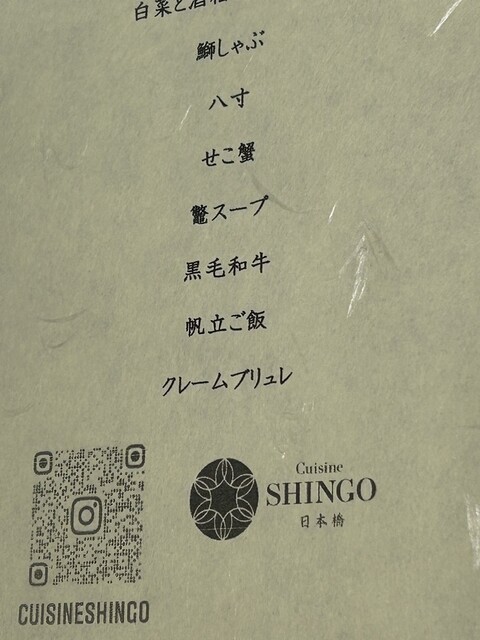 白菜と酒粕
鰤しゃぶ
八寸
せこ蟹
鼈スープ
黒毛和牛
帆立ご飯
クレームブリュレ
Cuisine
SHINGO
日本橋
CUISINESHINGO